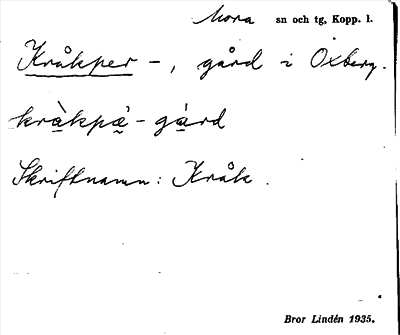 Mora sn och tg, Kopp. l.
Kråkper -, gård i Oxberg.
kråkpä̀ - gård
Skriftnamn: Kråk.
Bror Lindén 1935.